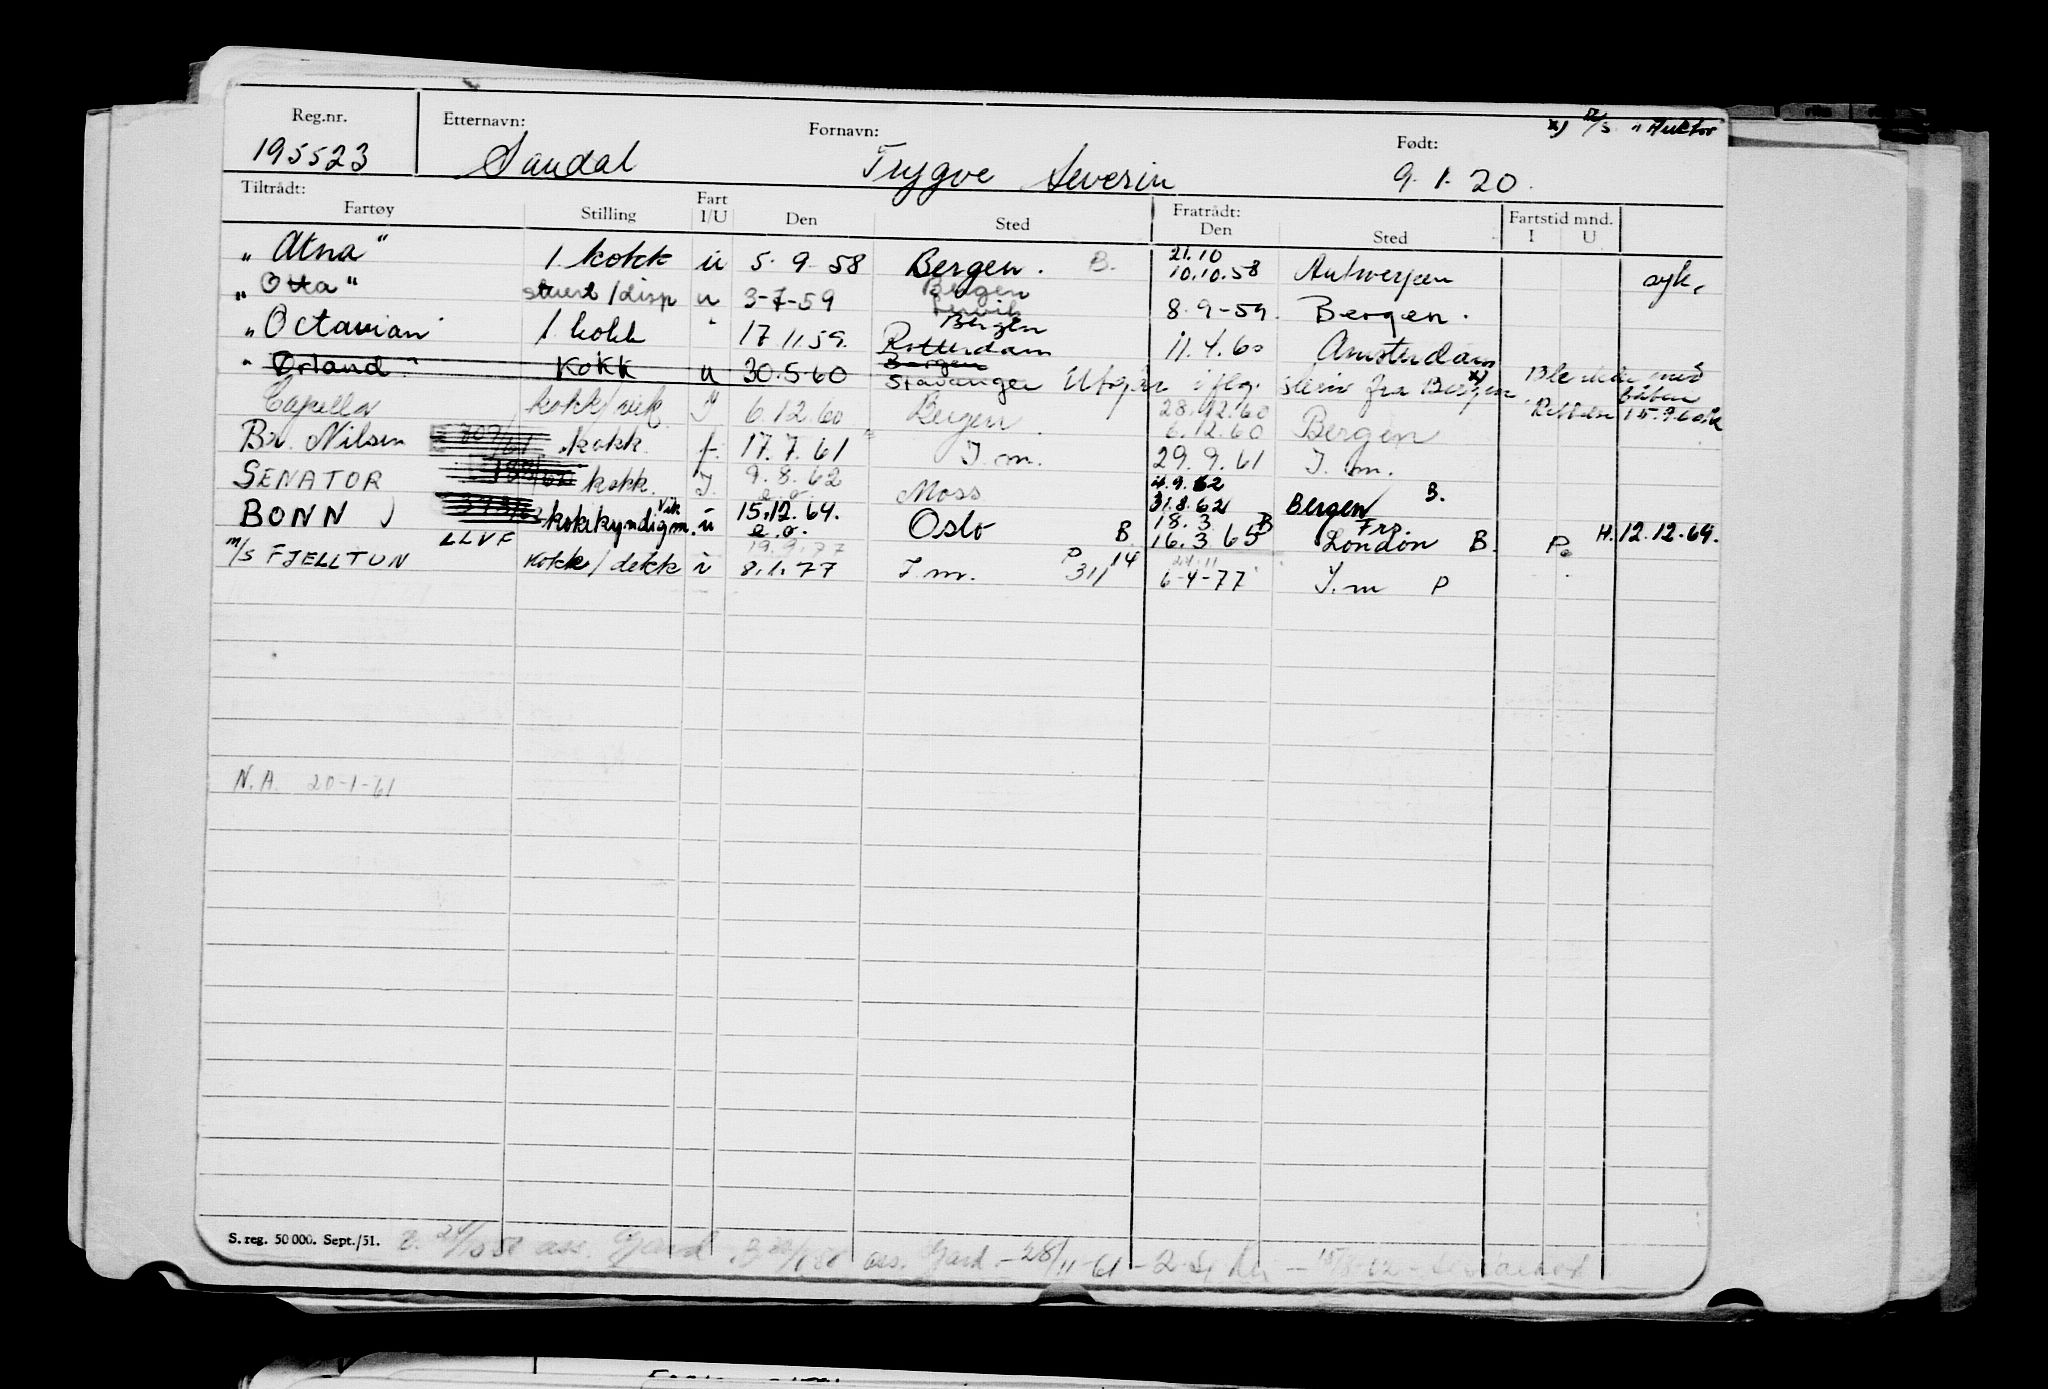 x) D/S "Auktor
Reg.nr. Etternavn: Fornavn: Født:
195523 Sandal Trygve Severin 9.1.20.
Tiltrådt: Fart Fratrådt: Fartstid mnd.
Fartøy Stilling I/U Den Sted Den Sted I U
21.10
"Atna" 1. kokk u 5.9.58 Bergen. B. 10.10.58 Antwerpen syk.
Bergen
"Otta" stuert/disp u 3-7-59 8.9-59. Bergen.
Bergen
"Octavian" 1. kokk " 17.11.59. Rotterdam 11.4.60 Amsterdam
Bergen
"Ørland" Kokk u 30.5.60 Stavanger Utgår i flg. skriv fra Bergen x)
15.9.60
Capella kokk/vik. I 6.12.60 Bergen 28.12.60
6.12.60 Bergen
Br. Nilsen kokk. f. 17.7.61 I.m. 29.9.61 I.m.
SENATOR kokk. I. 9.8.62 Moss 4.9.62
e.o. 31.8.62 Bergen B.
BONN vik kokkyndigm. u 15.12.64. Oslo B. 18.3. B Fra H. 12.12.64.
LLVF e.o. 16.3 65 London B. P.
19.9.77 P 14
m/s FJELLTUN kokk/dekk i 8.1.77 I.m. 311 6-4-77 I.m P
N.A. 20-1-61
S. reg. 50 000. Sept./51. ass. Gard ass. Gard - 28/11-61 -